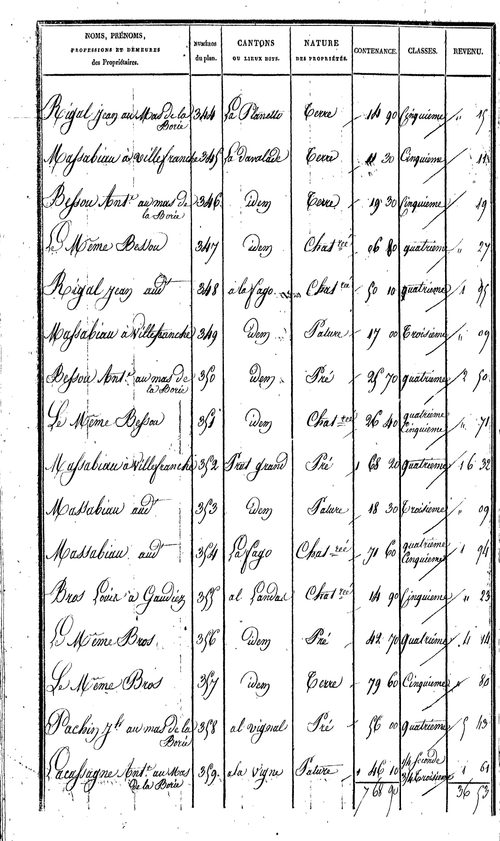 NOMS, PRÉNOMS, PROFESSIONS ET DEMEURES des Propriétaires. NUMÉROS du plan. CANTONS OU LIEUX DITS. NATURE DES PROPRIÉTÉS. CONTENANCE. CLASSES. REVENU.
Rigal Jean au Mas de la Borie 344 La Planette Terre 14 90 Cinquième " 15
Massabiau à Villefranche 345 La davalade Terre 11 30 Cinquième 11
Bessou Ant.e au mas de la Borie 346 idem Terre 19 30 Cinquième 19
Le Même Bessou 347 idem Chat.reé 06 80 quatrième " 27
Rigal Jean audt 348 à la fago Chat.reé 50 10 quatrième 1 95
Massabiau à Villefranche 349 idem Pature 17 00 Troisième " 09
Bessou Ant.e au mas de la Borie 350 idem Pré 25 70 quatrième 2 50
Le Même Bessou 351 idem Chat.reé 26 40 quatrième Cinquième " 71
Massabiau à Villefranche 352 Prat grand Pré 1 68 20 quatrième 16 32
Massabiau audt 353 idem Pature 18 30 Troisième " 09
Massabiau audt 354 La fago Chat.reé 71 60 quatrième Cinquième 1 94
Bros Louis à 355 al Landas Chat.reé 14 90 Cinquième " 23
Le Même Bros 356 idem Pré 42 70 Quatrième 4 14
Le Même Bros 357 idem Terre 79 60 Cinquième " 80
Pachin au mas de la Borie 358 al vignal Pré 56 00 quatrième 5 43
Lacassagne Ant.e au Mas de la Borie 359 a la vigne Pature 1 46 10 1/4 seconde 3/4 Troisième 1 61
7 68 90 36 53